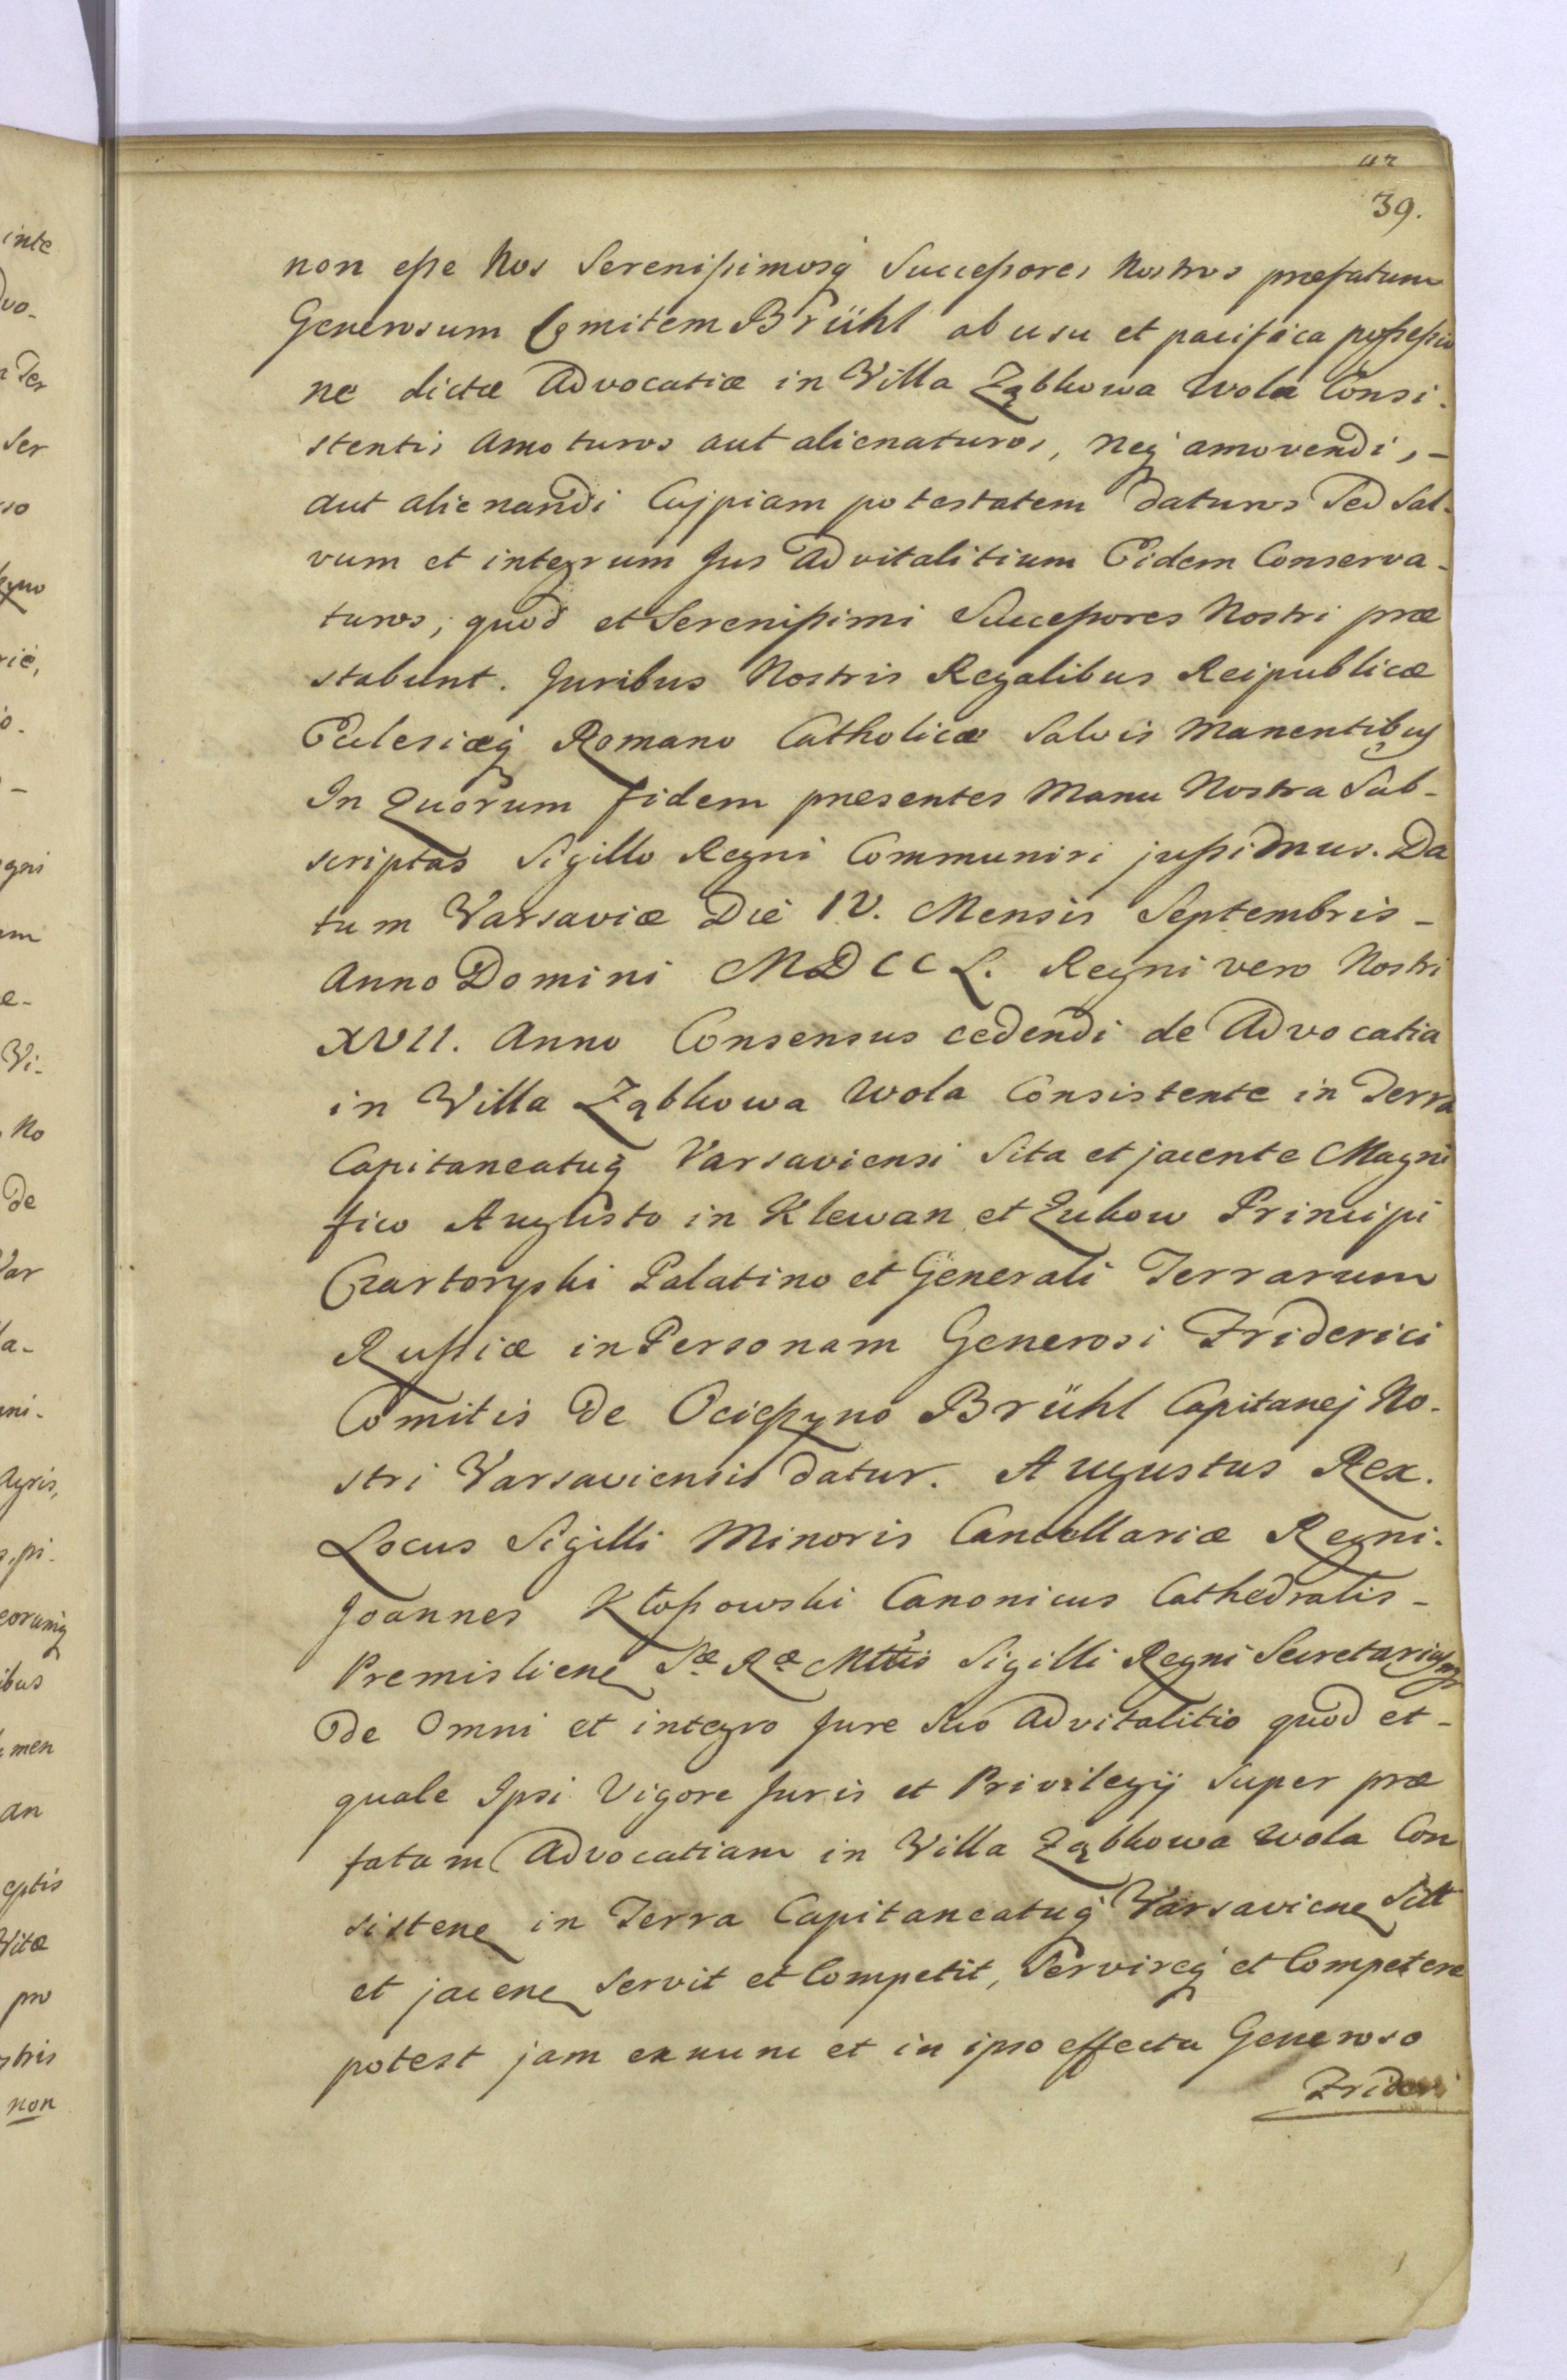 39.
non eße Nos Serenißimosq́ Succeßores Nostros præfatum
Generosum Comitem Brühl ab usu et pacifica poßeßio
ne dictæ Advocatiæ in Villa Ząbkowa Wola Consi-
stentis amoturos aut alienaturos, neq́ amovendi, -
aut alienandi Cujpiam potestatem daturos Sed Sal-
vum et integrum Jus Advitalitium Eidem Conserva-
turos, quod et Serenißimi Succeßores Nostri præ
stabunt. Juribus Nostris Regalibus Reipublicæ
Eclesiæq́ Romano Catholicæ Salvis Manentibus
In quorum fidem presentes Manu Nostra Sub-
scriptas Sigillo Regni Communiri jußimus. Da
tum Varsaviæ Die IV. Mensis Septembris -
Anno Domini MDCCL. Regni vero Nostri
XVII. Anno Consensus cedendi de Advocatia
in Villa Ząbkowa Wola Consistente in Terra
Capitaneatuq́ Varsaviensi Sita et jacente Magni
fico Augusto in Klewan et Zukow Principi
Czartoryski Palatino et Generali Terrarum
Rußiæ in Personam Generosi Friderici
Comitis de Ocieszyno Brühl Capitanej No-
stri Varsaviensis datur. Augustus Rex.
Locus Sigilli Minoris Cancellariæ Regni.
Joannes Kłoßowski Canonicus Cathedralis -
Premislien Sæ Ræ Mttis Sigilli Regni Secretarius
De Omni et integro Jure Suo Advitalitio quod et -
quale Ipsi Vigore Juris et Privilegij Super præ
fatam Advocatiam in Villa Ząbkowa Wola Con
sisten in Terra Capitaneatuq́ Varsavien Sitt
et jacen Servit et Competit, Servireq́ et Competere
potest jam exnunc et in ipso effectu Generoso
Frideri